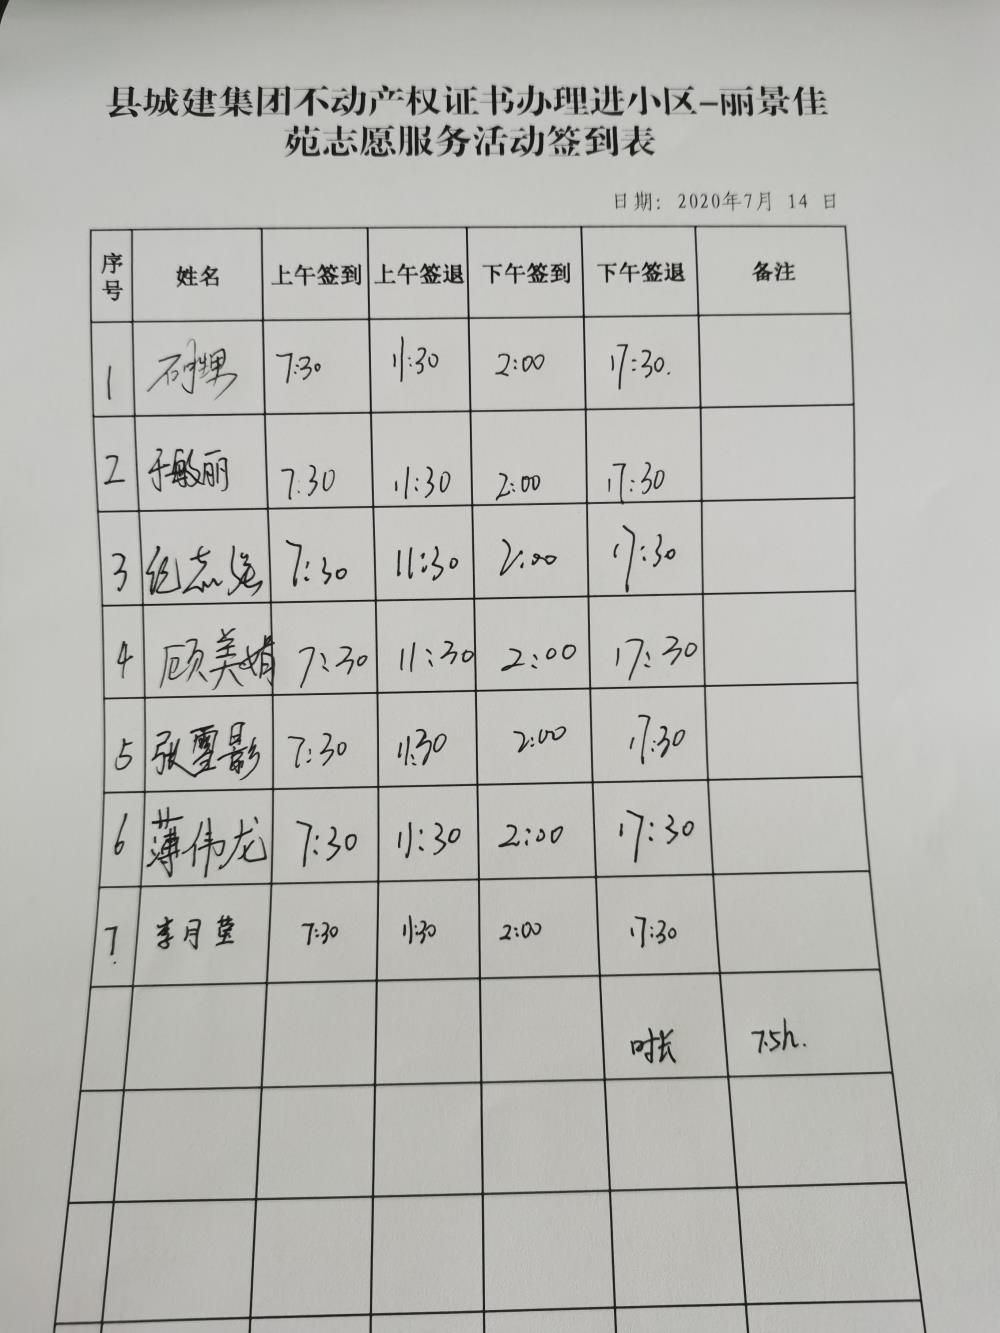 县城建集团不动产权证书办理进小区-丽景佳
苑志愿服务活动签到表
日期: 2020年7月 14 日
序号 姓名 上午签到 上午签退 下午签到 下午签退 备注
1 7:30 11:30 2:00 17:30.
2 于敏丽 7:30 11:30 2:00 17:30
3 纪志 7:30 11:30 2:00 17:30
4 顾美娟 7:30 11:30 2:00 17:30
5 张雪影 7:30 11:30 2:00 17:30
6 薄伟龙 7:30 11:30 2:00 17:30
7. 李月莹 7:30 11:30 2:00 17:30
时长 7.5h.